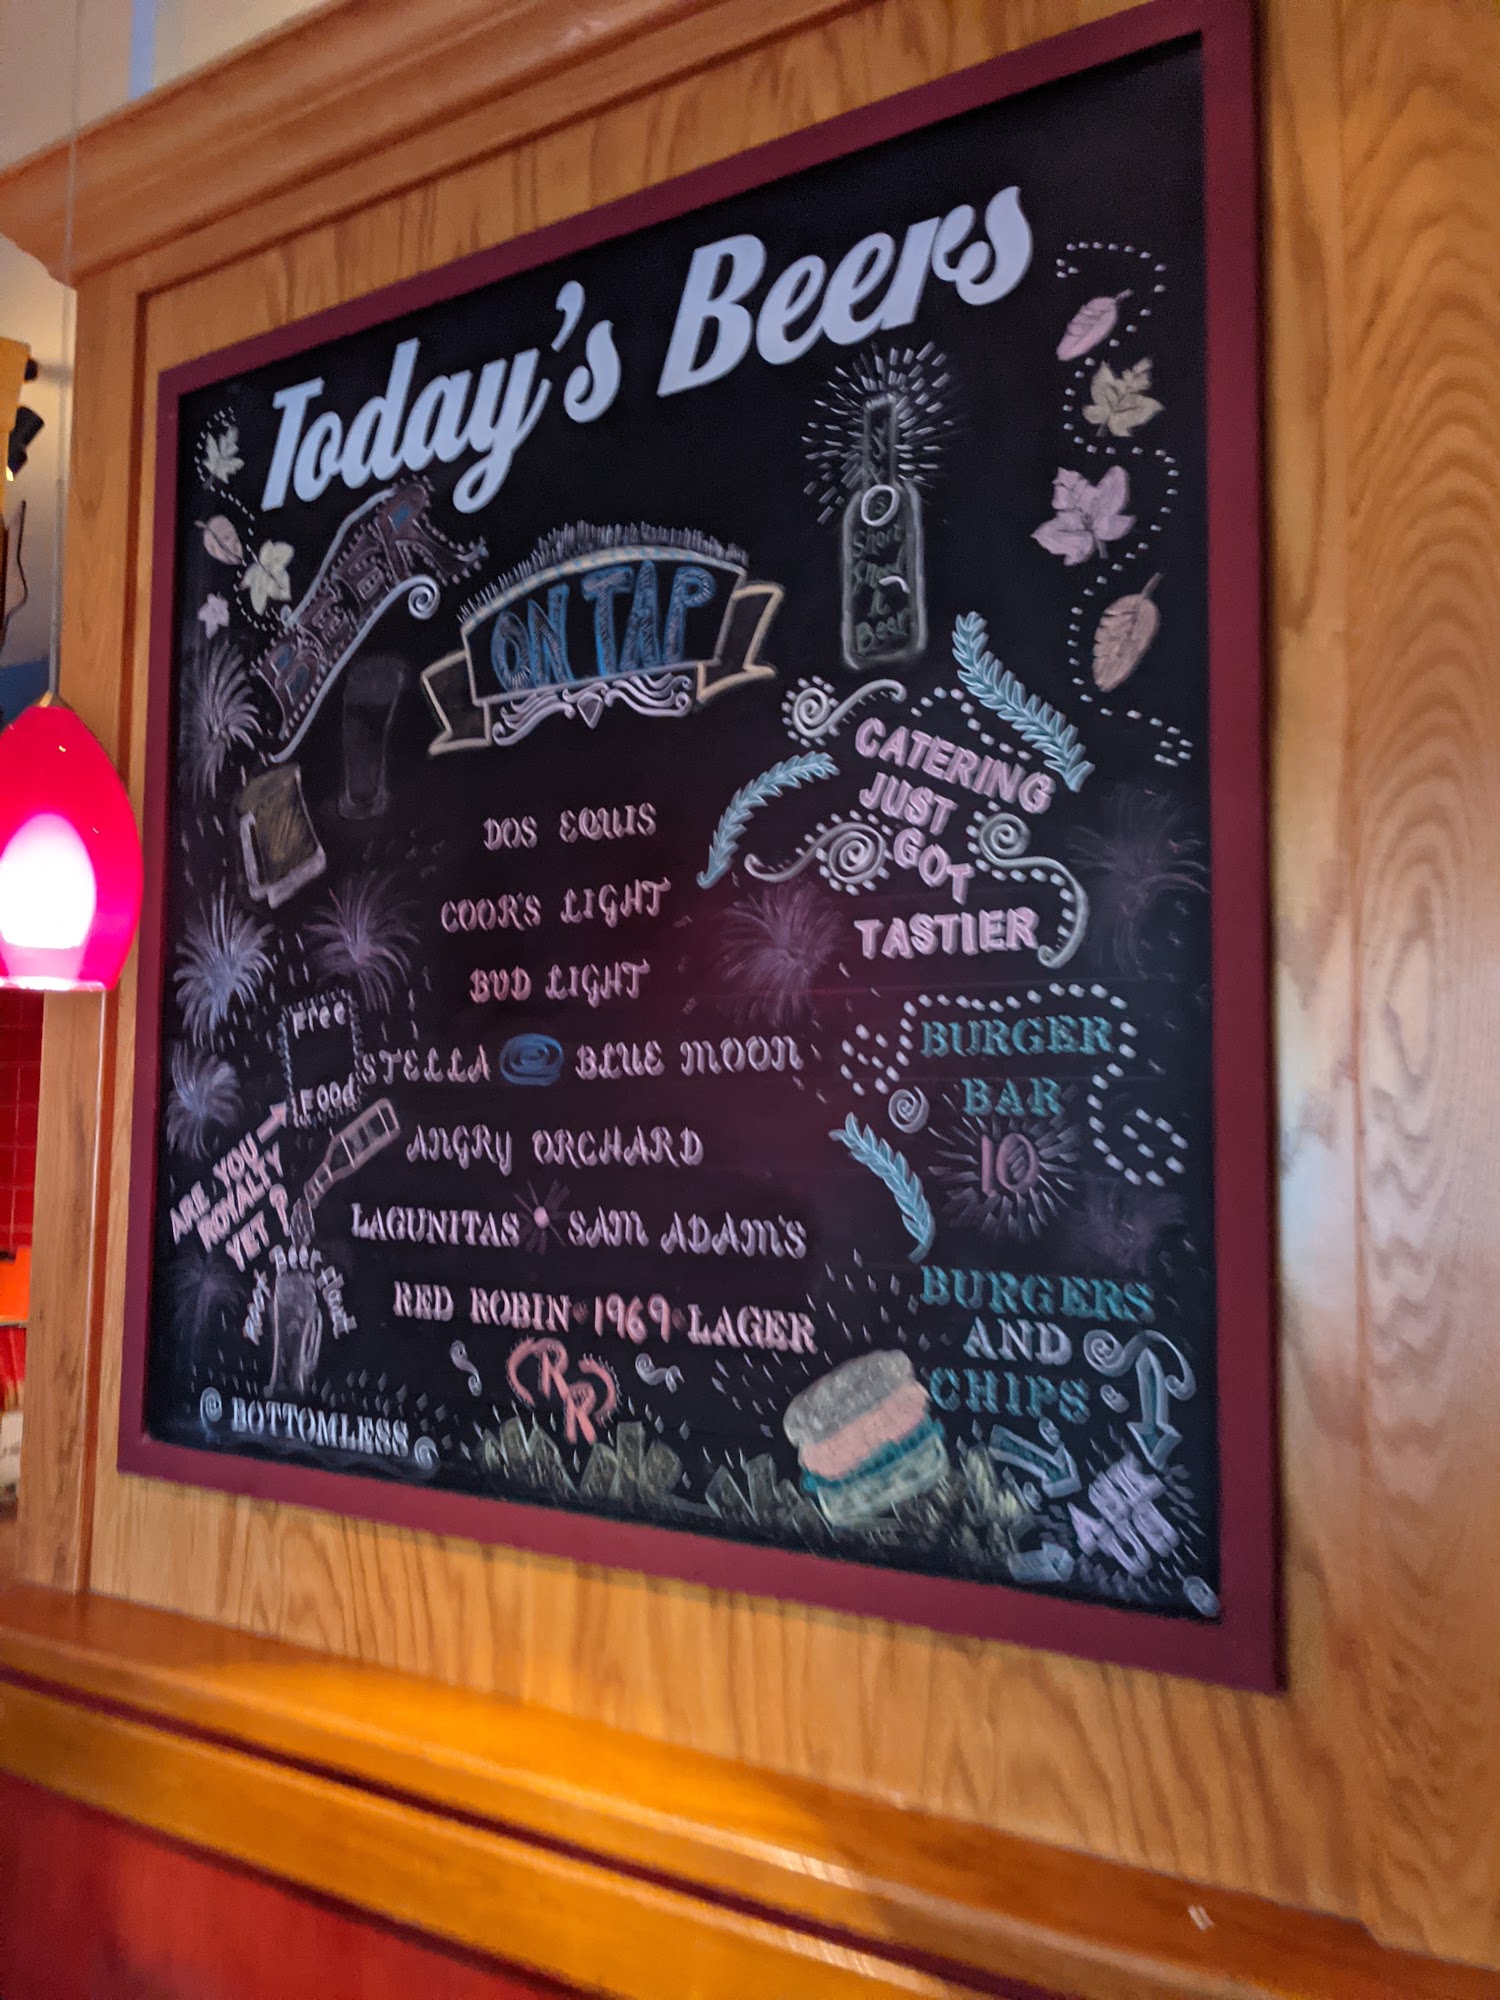 Today's Beers
ON TAP
DOS EQUIS
COOR'S LIGHT
BUD LIGHT
STELLA BLUE MOON
ANGRY ORCHARD
LAGUNITAS SAM ADAM'S
RED ROBIN 1969 LAGER
RR
Free
Food
ARE YOU
ROYALTY
YET ?
Root Beer Float
BOTTOMLESS
Beer
CATERING
JUST
GOT
TASTIER
BURGER
BAR
10
BURGERS
AND
CHIPS